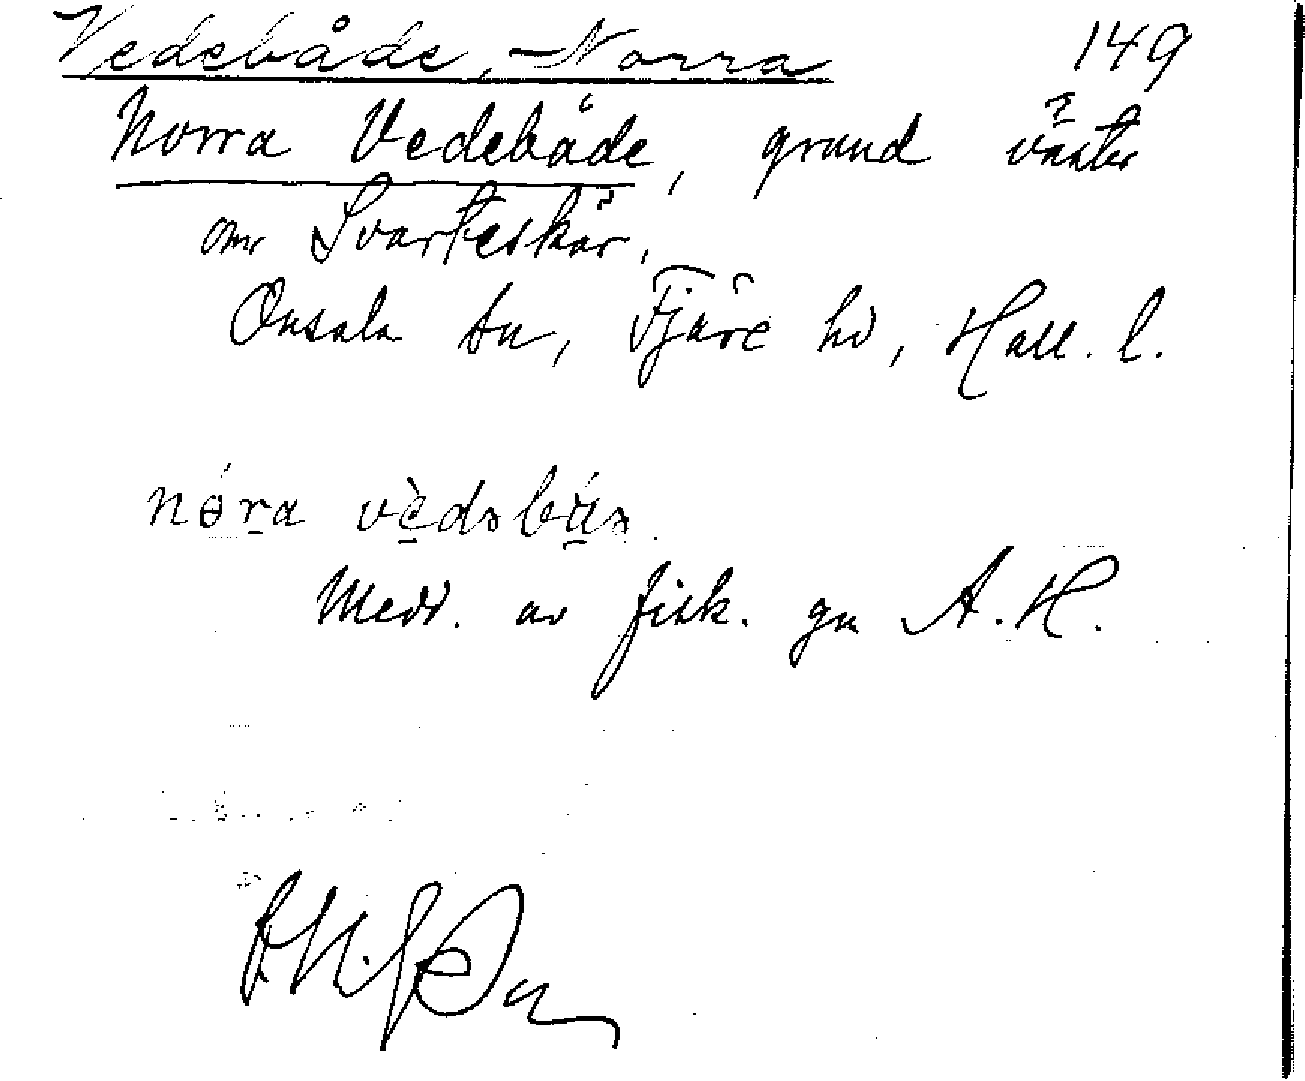 Vedebåde, Norra 149
Norra Vedebåde, grund väster
om Svarteskär.
Onsala sn, Fjäre hd, Hall. l.
Medd. av fisk. gm A.H.